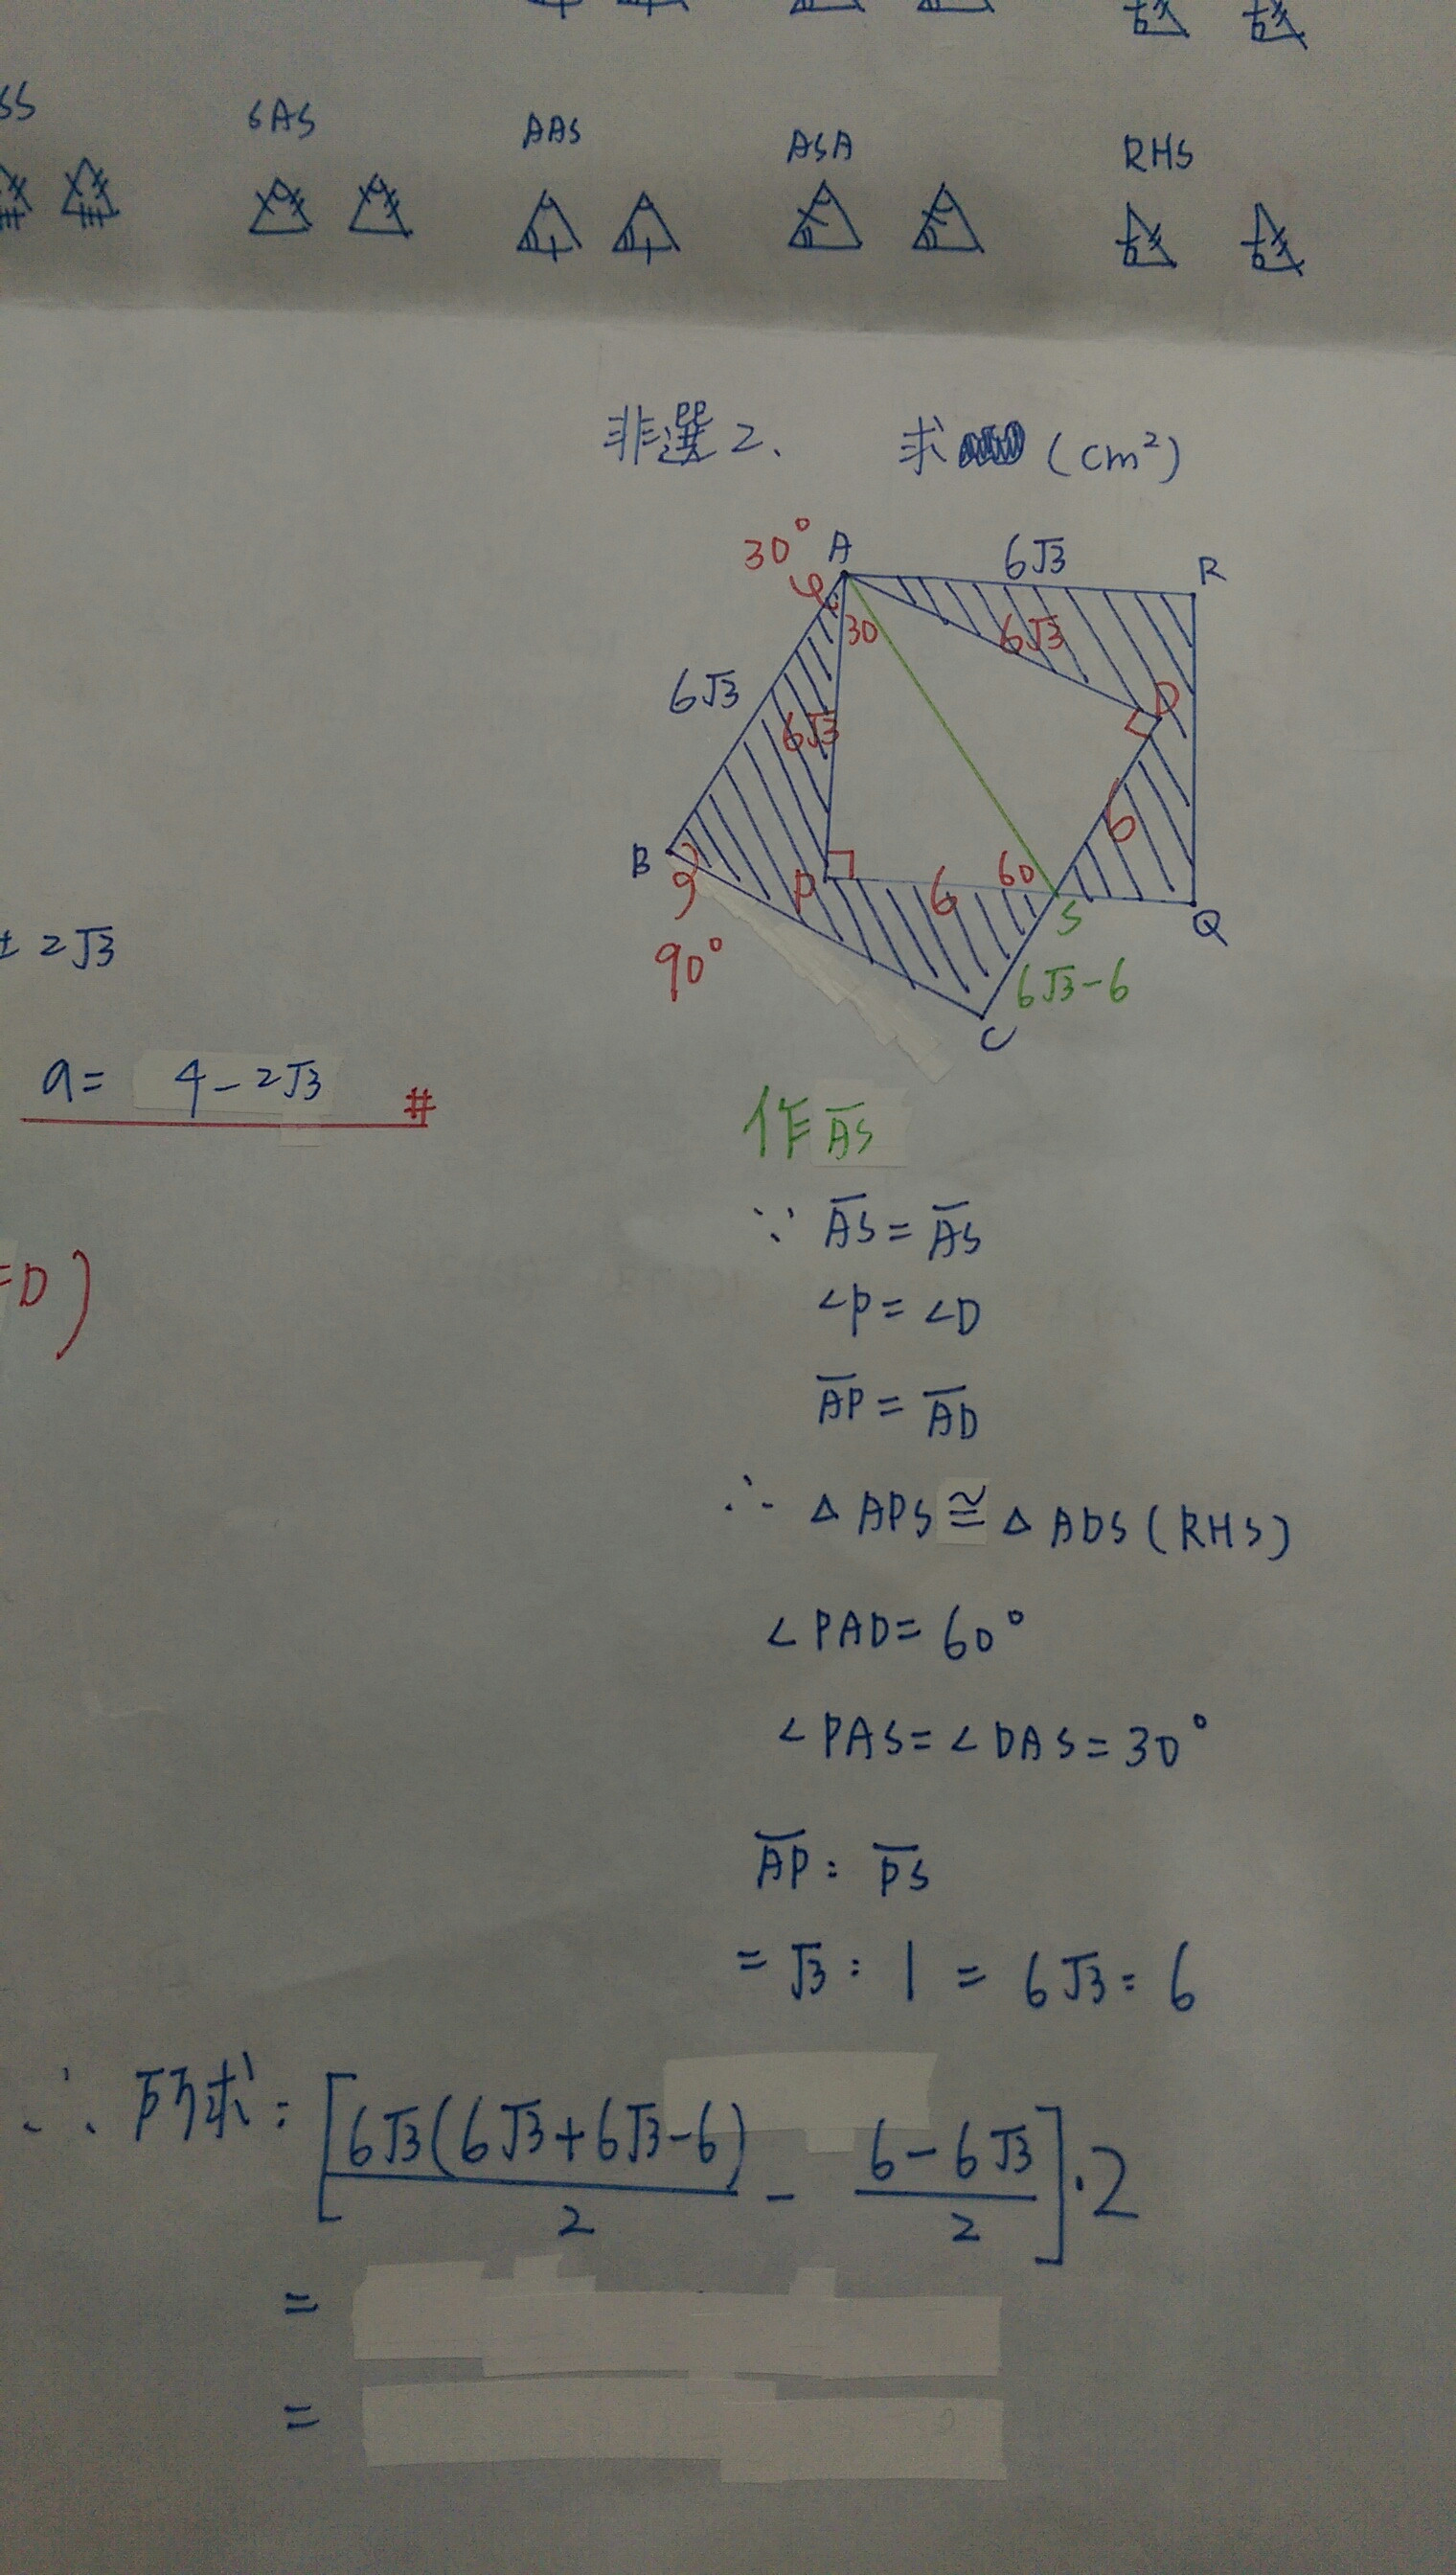 SS SAS AAS ASA RHS
非選2、 求 (cm²)
30° A 6√3 R
30 6√3 D
6√3 6√3
B P 6 60 6
90° S Q
6√3-6
C
± 2√3
a= 4-2√3 #
作AS
∵ AS = AS
∠P = ∠D
=D)
AP = AD
∴ △APS ≅ △ADS (RHS)
∠PAD = 60°
∠PAS = ∠DAS = 30°
AP : PS
= √3 : 1 = 6√3 : 6
∴ 所求 : [6√3(6√3+6√3-6)/2 - 6-6√3/2]·2
=
=